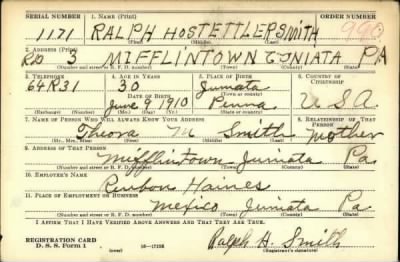 SERIAL NUMBER 1. NAME (Print) ORDER NUMBER
1171 RALPH HOSTETTLER SMITH 990
(First) (Middle) (Last)
2. ADDRESS (Print)
RD 3 MIFFLINTOWN JUNIATA PA
(Number and street or R. F. D. number) (Town) (County) (State)
3. TELEPHONE 4. AGE IN YEARS 5. PLACE OF BIRTH 6. COUNTRY OF CITIZENSHIP
64R31 30 Juniata
DATE OF BIRTH
June 9 1910 Penna U.S.A.
(Exchange) (Number) (Mo.) (Day) (Yr.) (Town or county) (State or country)
7. NAME OF PERSON WHO WILL ALWAYS KNOW YOUR ADDRESS 8. RELATIONSHIP OF THAT PERSON
M Smith Mother
(Mr., Mrs., Miss) (First) (Middle) (Last)
9. ADDRESS OF THAT PERSON
Mifflintown Juniata Pa.
(Number and street or R. F. D. number) (Town) (County) (State)
10. EMPLOYER'S NAME
Reubon Haines
11. PLACE OF EMPLOYMENT OR BUSINESS
Mexico Juniata Pa
(Number and street or R. F. D. number) (Town) (County) (State)
I AFFIRM THAT I HAVE VERIFIED ABOVE ANSWERS AND THAT THEY ARE TRUE.
REGISTRATION CARD
D. S. S. Form 1 16—17105 Ralph H. Smith
(Registrant's signature)